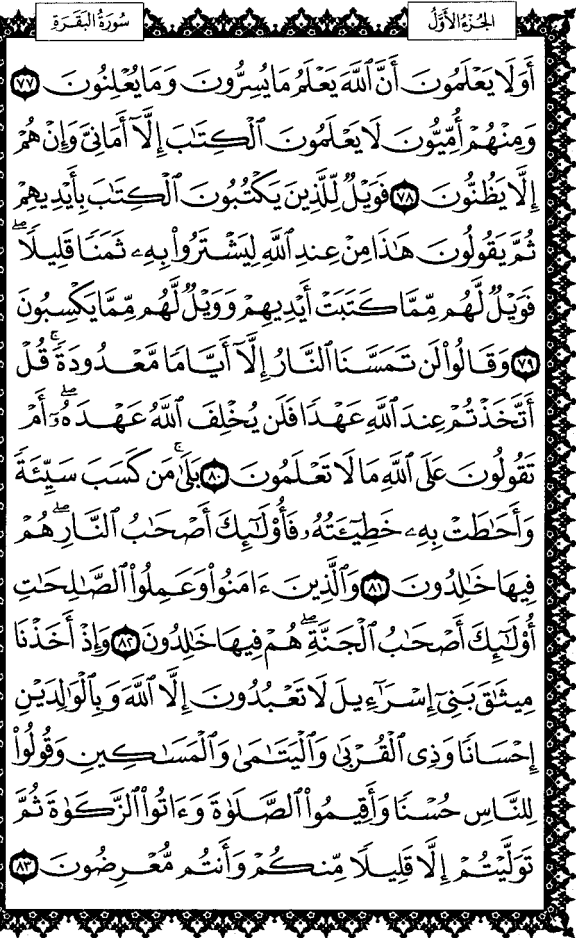 الجزء الأول
سورة البقرة
أَوَلَا يَعْلَمُونَ أَنَّ ٱللَّهَ يَعْلَمُ مَا يُسِرُّونَ وَمَا يُعْلِنُونَ ٧٧
وَمِنْهُمْ أُمِّيُّونَ لَا يَعْلَمُونَ ٱلْكِتَٰبَ إِلَّآ أَمَانِىَّ وَإِنْ هُمْ
إِلَّا يَظُنُّونَ ٧٨ فَوَيْلٌ لِّلَّذِينَ يَكْتُبُونَ ٱلْكِتَٰبَ بِأَيْدِيهِمْ
ثُمَّ يَقُولُونَ هَٰذَا مِنْ عِندِ ٱللَّهِ لِيَشْتَرُوا۟ بِهِۦ ثَمَنًا قَلِيلًا ۖ
فَوَيْلٌ لَّهُم مِّمَّا كَتَبَتْ أَيْدِيهِمْ وَوَيْلٌ لَّهُم مِّمَّا يَكْسِبُونَ
٧٩ وَقَالُوا۟ لَن تَمَسَّنَا ٱلنَّارُ إِلَّآ أَيَّامًا مَّعْدُودَةً ۚ قُلْ
أَتَّخَذْتُمْ عِندَ ٱللَّهِ عَهْدًا فَلَن يُخْلِفَ ٱللَّهُ عَهْدَهُۥٓ ۖ أَمْ
تَقُولُونَ عَلَى ٱللَّهِ مَا لَا تَعْلَمُونَ ٨٠ بَلَىٰ ۚ مَن كَسَبَ سَيِّئَةً
وَأَحَٰطَتْ بِهِۦ خَطِيٓـَٔتُهُۥ فَأُو۟لَٰٓئِكَ أَصْحَٰبُ ٱلنَّارِ ۖ هُمْ
فِيهَا خَٰلِدُونَ ٨١ وَٱلَّذِينَ ءَامَنُوا۟ وَعَمِلُوا۟ ٱلصَّٰلِحَٰتِ
أُو۟لَٰٓئِكَ أَصْحَٰبُ ٱلْجَنَّةِ ۖ هُمْ فِيهَا خَٰلِدُونَ ٨٢ وَإِذْ أَخَذْنَا
مِيثَٰقَ بَنِىٓ إِسْرَٰٓءِيلَ لَا تَعْبُدُونَ إِلَّا ٱللَّهَ وَبِٱلْوَٰلِدَيْنِ
إِحْسَانًا وَذِى ٱلْقُرْبَىٰ وَٱلْيَتَٰمَىٰ وَٱلْمَسَٰكِينِ وَقُولُوا۟
لِلنَّاسِ حُسْنًا وَأَقِيمُوا۟ ٱلصَّلَوٰةَ وَءَاتُوا۟ ٱلزَّكَوٰةَ ثُمَّ
تَوَلَّيْتُمْ إِلَّا قَلِيلًا مِّنكُمْ وَأَنتُم مُّعْرِضُونَ ٨٣